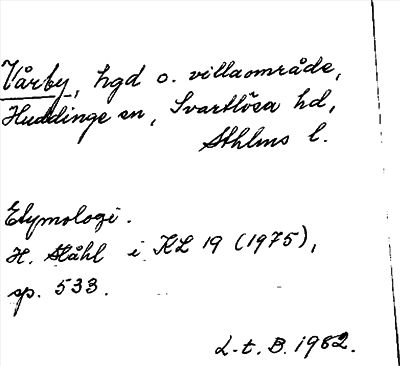 Vårby, hgd o. villaområde,
Huddinge sn, Svartlösa hd,
Sthlms l.
Etymologi.
H. Ståhl i KL 19 (1975),
sp. 533.
L-t. B. 1982.